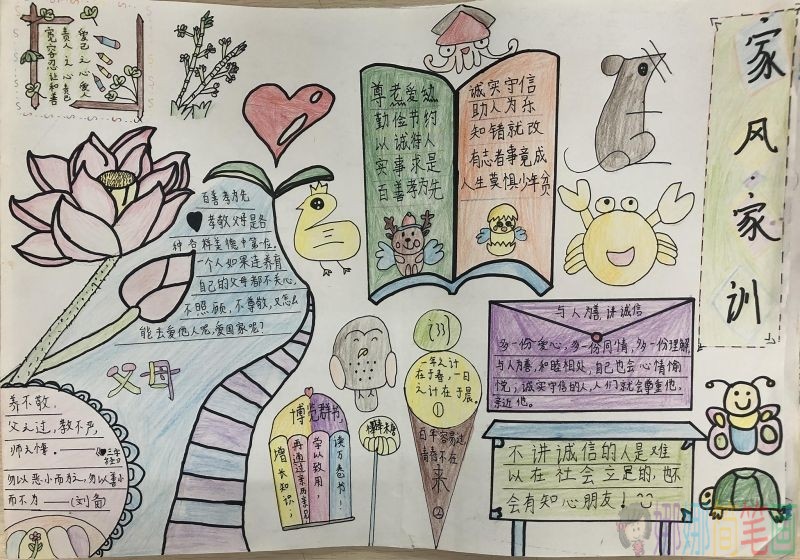 家风·家训
爱己之心爱人
责人之心责己
宽容忍让和善
尊煮爱幼
勤俭节约
以诚待人
实事求是
百善孝方先
诚实守信
助人为乐
知错就改
有志者事竟成
人生莫惧少年贫
百善孝为先
孝敬父母是各
种各样美德中第一位。
一个人如果连养育
自己的父母都不关心,
不照顾,不尊敬,又怎么
能去爱他人呢,爱国家呢?
父母
养不敬,
父之过,教不严,
师之惰。
《三字经》
勿以恶小而为之,勿以善小
而不为——(刘备)
博览群书
增长知识;
再通过亲历亲见
学以致用,
读万卷书!
一年之计
在于春,一日
之计在于晨。
①
百年容易过
青春不在
来
②
与人为善,讲诚信
多一份爱心,多一份同情,多一份理解,
与人为善,和睦相处,自己也会心情愉
悦;诚实守信的人,人们就会尊重他,
亲近他。
不讲诚信的人是难
以在社会立足的,也不
会有知心朋友!
娜娜简笔画